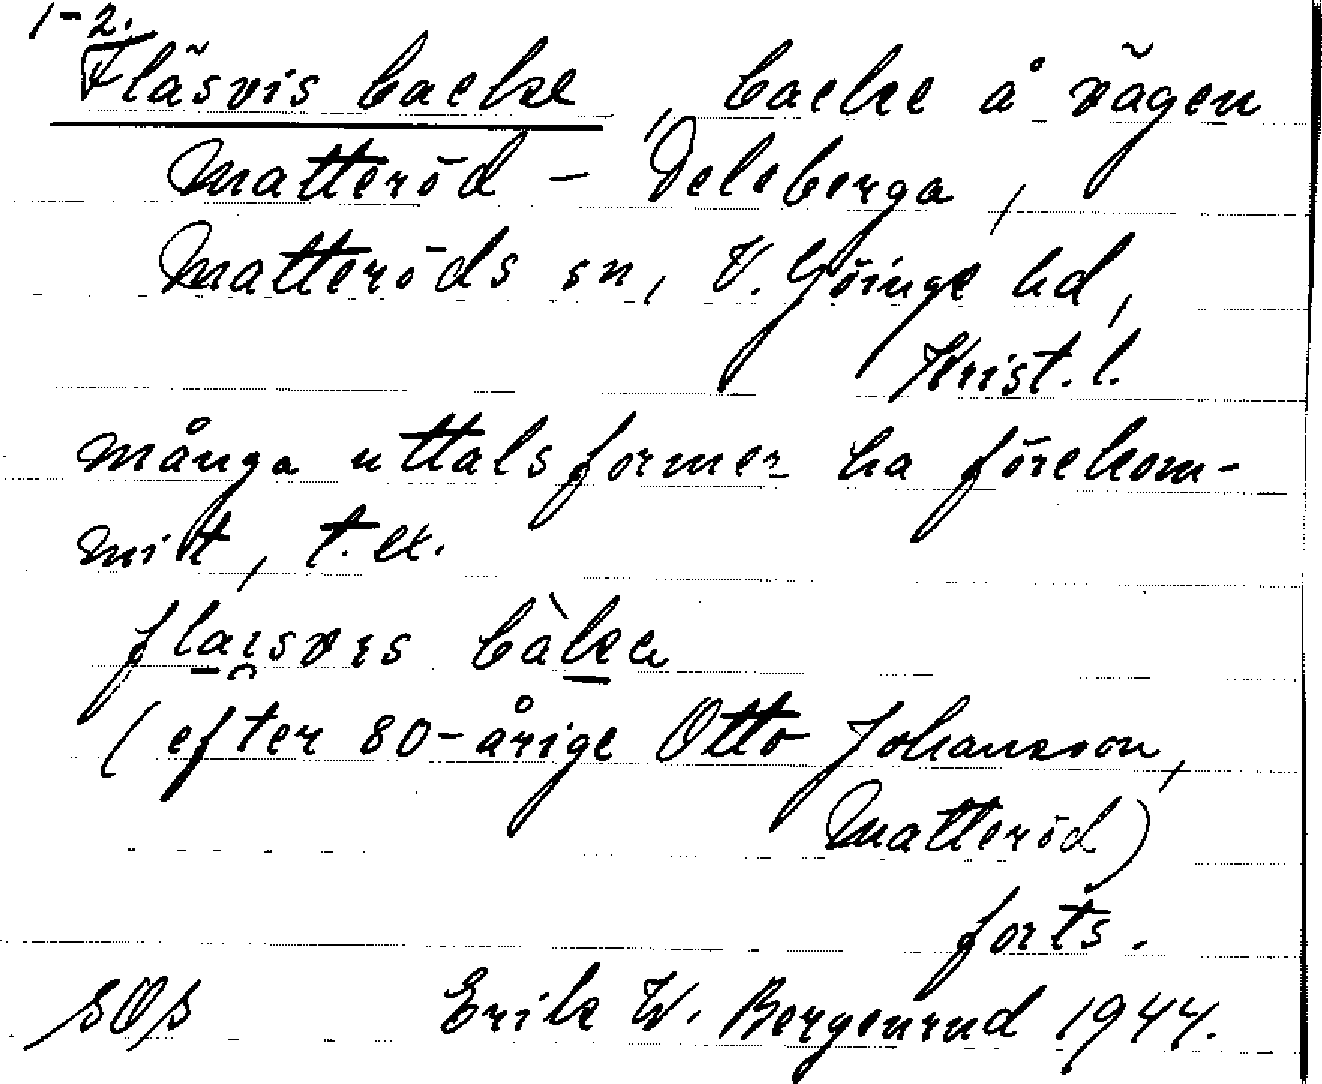 1-2.
Fläsvis backe, backe å vägen
Matteröd - Deleberga,
Matteröds sn, V. Göinge hd,
Krist. l.
många uttalsformer ha förekom-
mit, t. ex.
(efter 80-årige Otto Johansson,
Matteröd)
forts.
SOS Erik W. Bergenrud 1944.